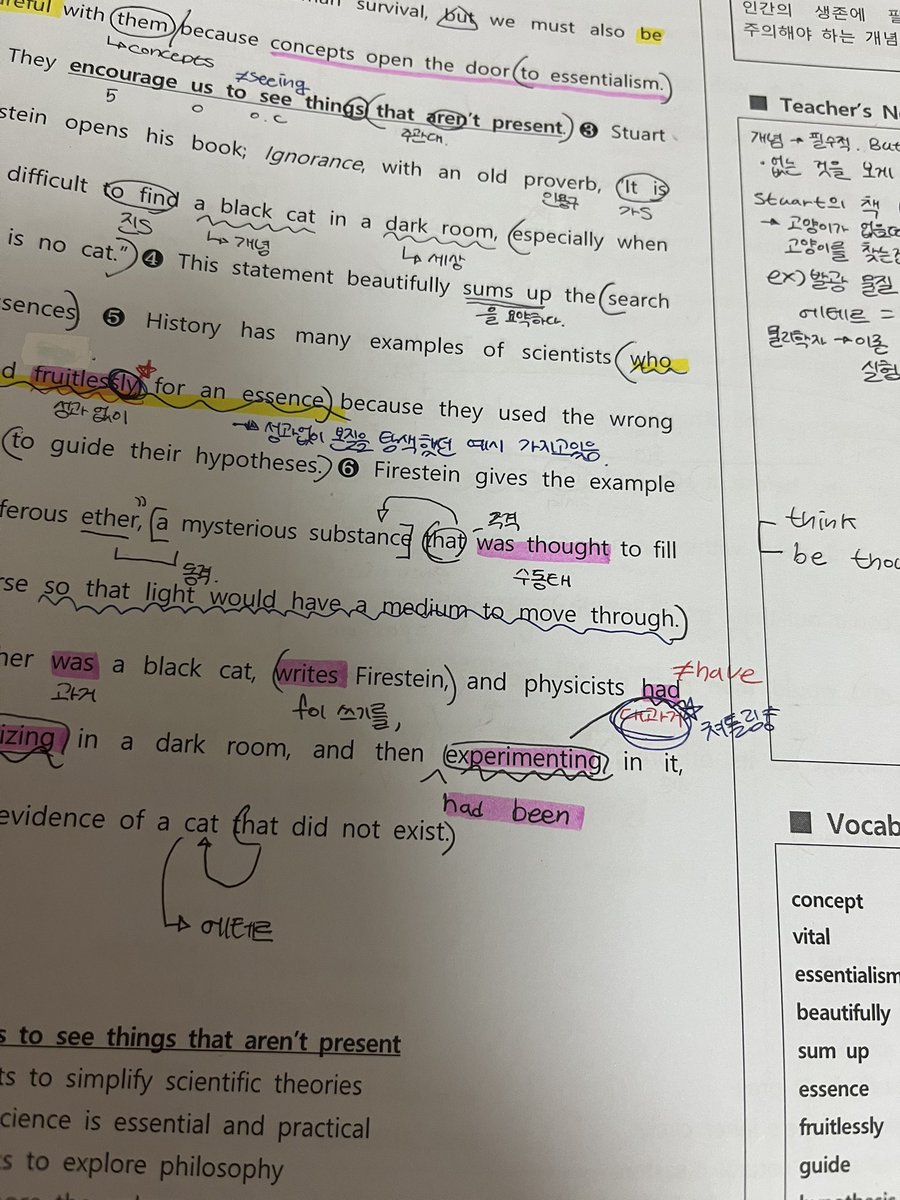 survival, but we must also be
with them because concepts open the door to essentialism.
↳concepts
≠seeing
They encourage us to see things that aren't present. ❸ Stuart
5 o o.c 주관대.
stein opens his book; Ignorance, with an old proverb, "It is
인용구 가S
difficult to find a black cat in a dark room, especially when
진S ↳개념 ↳세상
is no cat." ❹ This statement beautifully sums up the search
을 요약하다.
ssences ❺ History has many examples of scientists who
d fruitlessly for an essence because they used the wrong
성과 없이 → 성과없이 본질을 탐색했던 예시 가지고있음.
to guide their hypotheses. ❻ Firestein gives the example
ferous ether, a mysterious substance that was thought to fill
동격. 주격 수동태
rse so that light would have a medium to move through.
her was a black cat, writes Firestein, and physicists had
≠have
과거 쓰기를, 대과거
izing in a dark room, and then experimenting in it,
had been
evidence of a cat that did not exist.
↳ 에테르
s to see things that aren't present
ts to simplify scientific theories
cience is essential and practical
s to explore philosophy
인간의 생존에 필
주의해야 하는 개념
■ Teacher's N
개념 → 필수적. But
· 없는 것을 보게
Stuart의 책
→ 고양이가
고양이를 찾는
ex) 발광 물질
에테르 =
물리학자 → 이론
실험
think
be thou
■ Vocab
concept
vital
essentialism
beautifully
sum up
essence
fruitlessly
guide